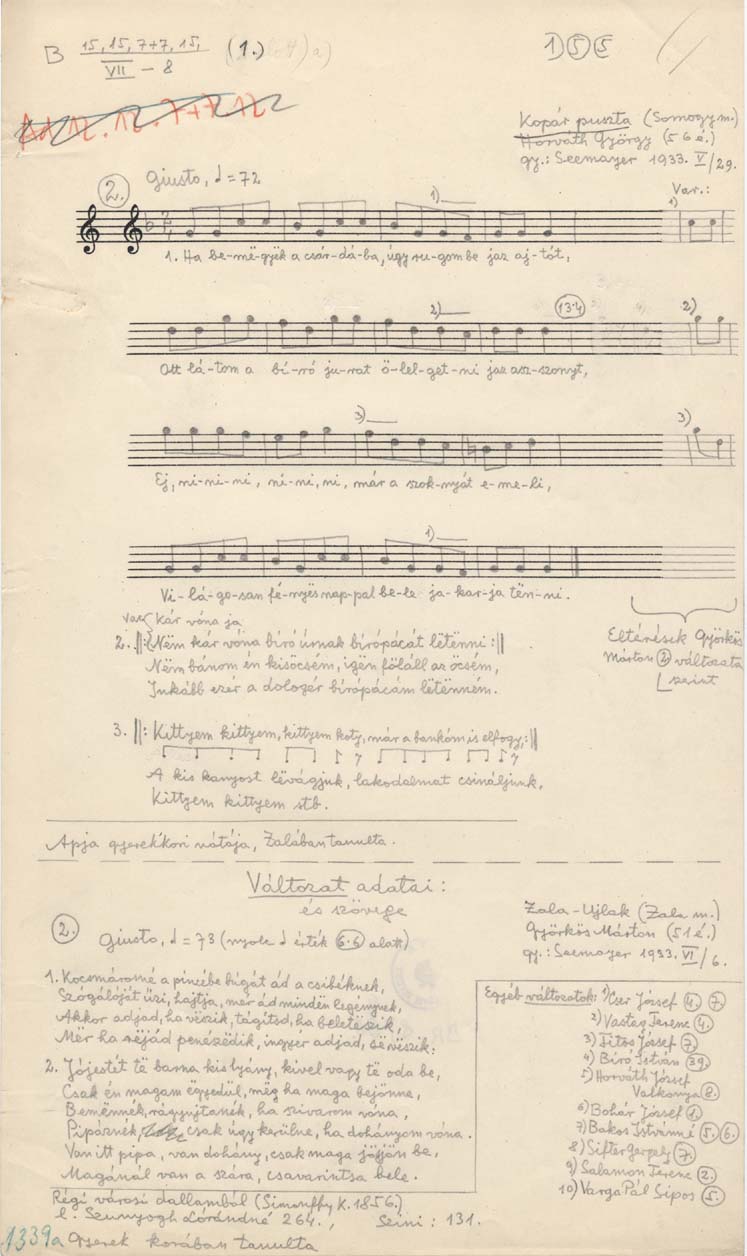 B 15, 15, 7+7, 15, (1.)
VII – 8
155
Ad 12. 12. 7+7 12
Kopár puszta (Somogy m.)
Horváth György (56 é.)
gy.: Seemayer 1933. V/29.
2. Giusto, ♩=72
Var.:
1) 1)
1. Ha be-mëgyëk a csár-dá-ba, úgy ru-gom be jaz aj-tót,
2) 13·4 2)
Ott lá-tom a bí-ró ju-rat ö-lel-get-ni jaz asz-szonyt,
3) 3)
Ej, ni-ni-ni, ni-ni, ni, már a szok-nyát e-me-li,
1)
Vi-lá-go-san fé-nyës nap-pal be-le ja-kar-ja tën-ni.
vagy kár vóna ja
2. ‖: Nëm kár vóna bíró úrnak bírópácát lëtënni :‖
Nëm bánom én kisöcsém, igën föláll az öcsém,
Inkább ezér a dologér bírópácám lëtënném.
Eltérések Györkös
Márton 2. változata
szerint
3. ‖: Kittyem kittyem, kittyem koty, már a bankóm is elfogy, :‖
A kis kanyost lëvágjuk, lakodalmat csináljunk,
Kittyem kittyem stb.
Apja gyerekkori nótája, Zalában tanulta.
Változat adatai:
és szövege
2. Giusto, ♩=73 (nyolc ♩ érték 6·6 alatt)
Zala-Ujlak (Zala m.)
Györkös Márton (51 é.)
gy.: Seemayer 1933. VI/6.
1. Kocsmárosné a pincébe búgát ád a csibéknek,
Szógálóját űzi, hajtja, mer ád mindën legénynek,
Akkor adjad, ha vëszik, tágítsd, ha beletëszik,
Mer ha rëjád penezëdik, ingyer adjad, së vëszik.
2. Jójestét të barna kis lyány, kivel vagy të oda be,
Csak én magam ëgyedül, mëg ha maga bejönne,
Bemënnék, rágyujtanék, ha szivarom vóna,
Pipáznék, csak úgy kerülne, ha dohányom vóna.
Van itt pipa, van dohány, csak maga jöjjön be,
Magánál van a szára, csavarintsa bele.
Egyéb változatok: 1) Cser József 4. 7.
2) Vasteg Ferenc 4.
3) Titos József 7.
4) Bíró István 39.
5) Horváth József
Valkonya 8.
6) Bohár József 1.
7) Bakos Istvánné 5. 6.
8) Sifter Gergely 7.
9) Salamon Ferenc 2.
10) Varga Pál Sipos 5.
Régi városi dallamból (Simonffy K. 1856.)
l. Szunyogh Lórándné 264., Szini: 131.
1339a Gyerek korában tanulta